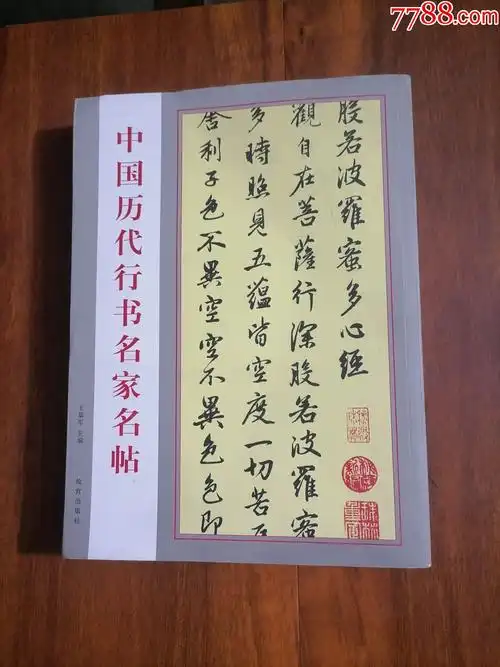 7788.com
中国历代行书名家名帖
主编
故宫出版社
般若波羅蜜多心經
觀自在菩薩行深般若波羅蜜
多時照見五蘊皆空度一切苦厄
舍利子色不異空空不異色色即